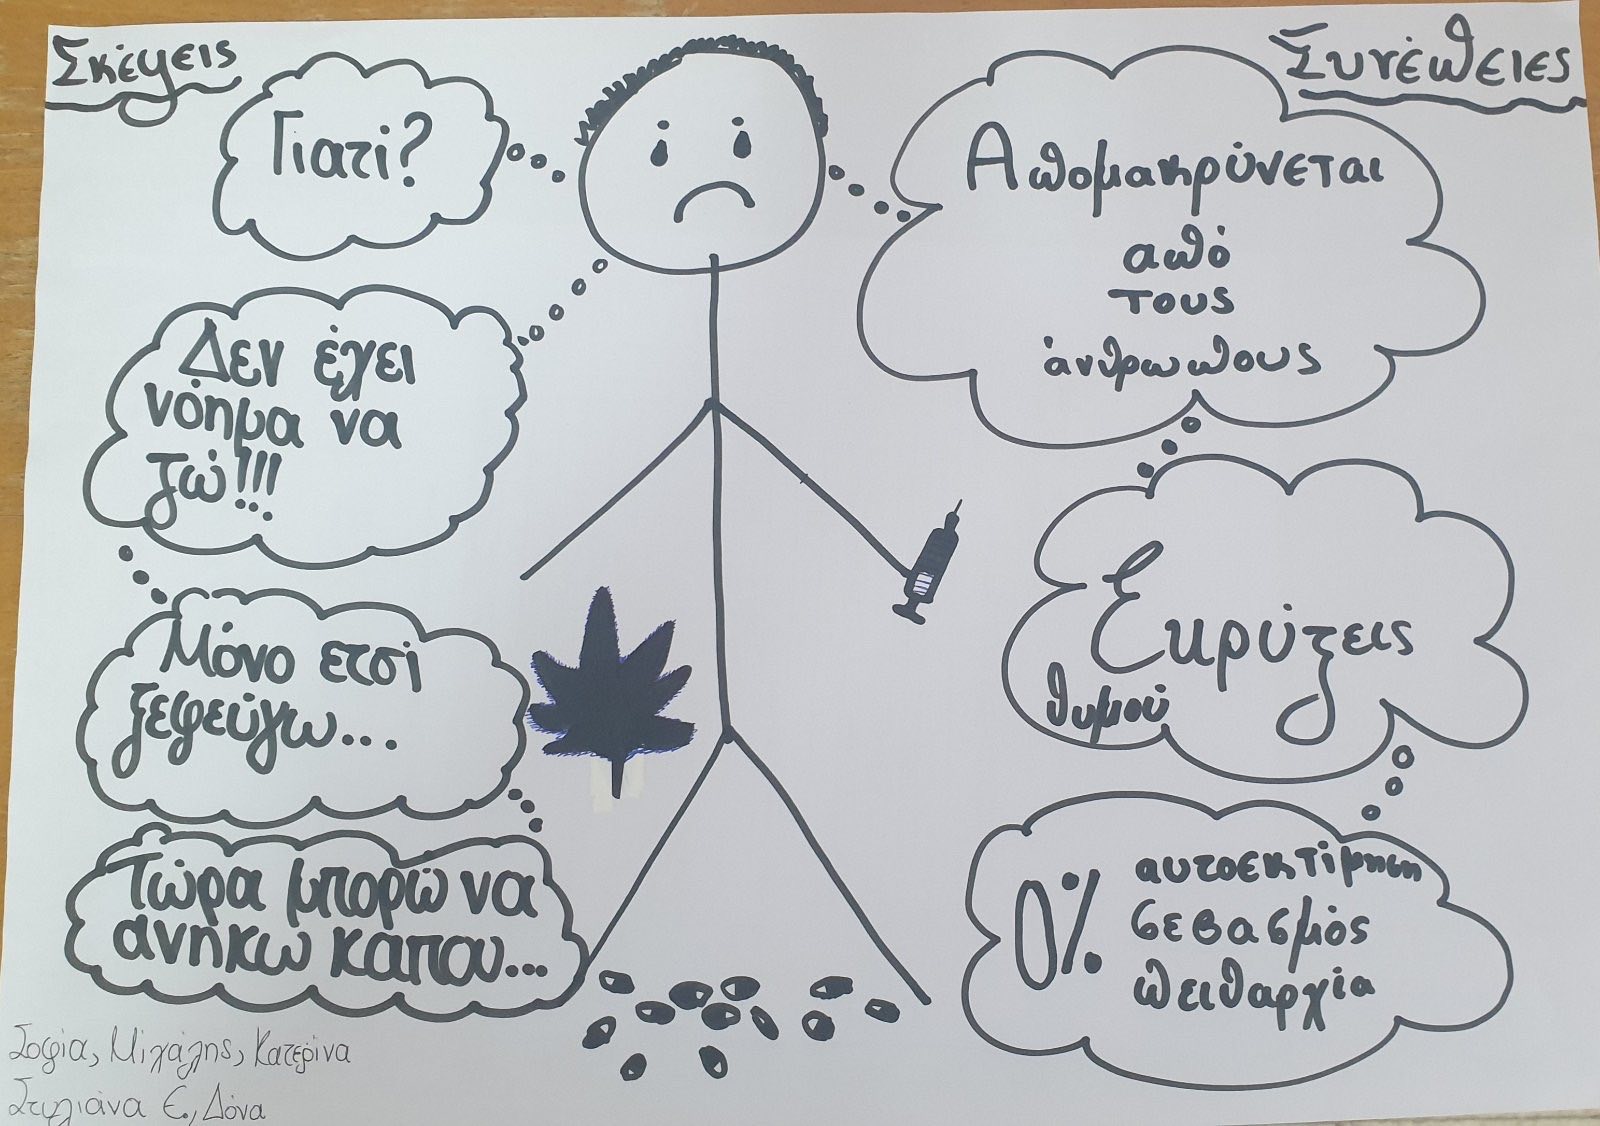 Σκέψεις
Γιατί?
Δεν έχει
νόημα να
ζω!!!
Μόνο ετσί
ξεφεύγω...
Τώρα μπορώ να
ανήκω κάπου...
Σοφία, Μιχάλης, Κατερίνα
Στυλιάνα Ε., Δόνα
Συνέπειες
Απομακρύνεται
από
τους
άνθρωπους
Εκρύζεις
θυμού
0%
αυτοεκτίμηση
σεβασμός
πειθαρχία